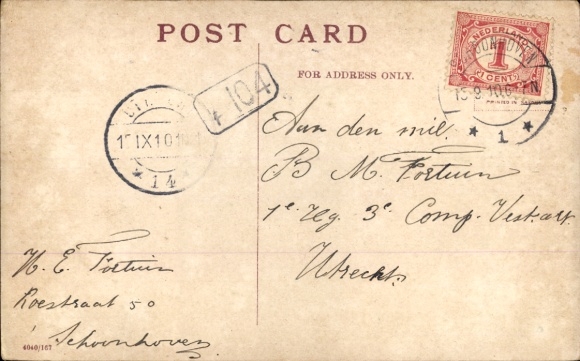 POST CARD
FOR ADDRESS ONLY.
NEDERLAND
1
1 CENT
SCHOONHOVEN
* 1 *
* 14 *
104
Aan den mil.
B M. Fortuin
1e Rg. 3e Comp. Vest. art.
Utrecht.
H. E. Fortuin
Koestraat 50
Schoonhoven
4040/167